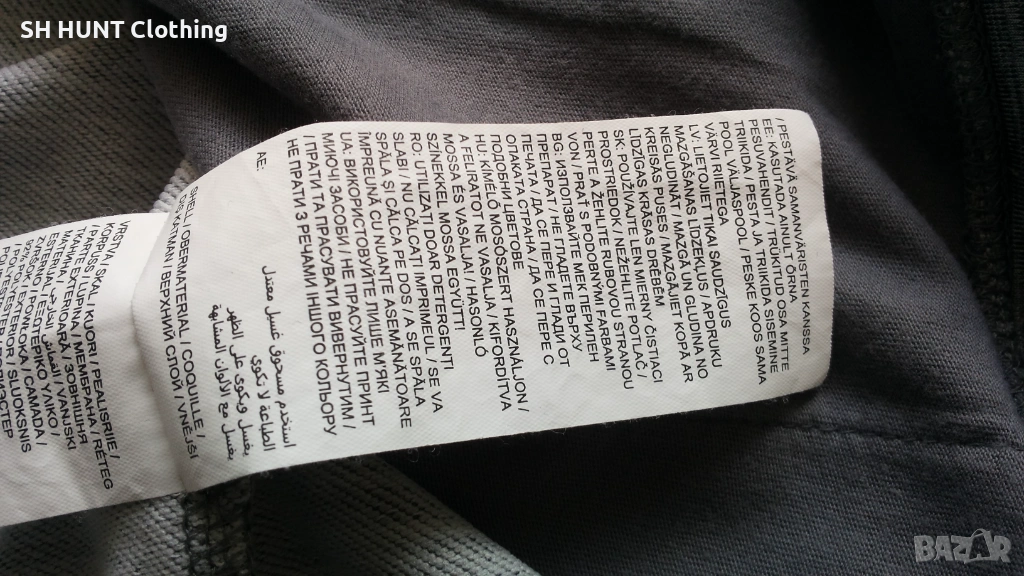 SH HUNT Clothing
/ PESTÄVÄ SAMANVÄRISTEN KANSSA
EE: KASUTADA AINULT ÕRNA
PESUVAHENDIT / TRÜKITUD OSA MITTE
TRIIKIDA / PESTA JA TRIIKIDA SISEMINE
POOL VÄLJASPOOL / PESKE KOOS SAMA
VÄRVI RIIETEGA
LV: LIETOJIET TIKAI SAUDZĪGUS
MAZGĀŠANAS LĪDZEKĻUS / APDRUKU
NEGLUDINĀT / MAZGĀ UN GLUDINA NO
KREISĀS PUSES / MAZGĀJIET KOPĀ AR
LĪDZĪGAS KRĀSAS DRĒBĒM
SK: POUŽÍVAJTE LEN MIERNY ČISTIACI
PROSTRIEDOK / NEŽEHLITE POTLAČ /
PERTE A ŽEHLITE RUBOVOU STRANOU
VON / PRAŤ S PODOBNÝMI FARBAMI
BG: ИЗПОЛЗВАЙТЕ МЕК ПЕРИЛЕН
ПРЕПАРАТ / НЕ ГЛАДЕТЕ ВЪРХУ
ПЕЧАТА / ДА СЕ ПЕРЕ И ГЛАДИ ОТ
ОПАКАТА СТРАНА / ДА СЕ ПЕРЕ С
ПОДОБНИ ЦВЕТОВЕ
HU: KÍMÉLŐ MOSÓSZERT HASZNÁLJON /
A FELIRATOT NE VASALJA / KIFORDÍTVA
MOSSA ÉS VASALJA! / HASONLÓ
SZÍNEKKEL MOSSA EGYÜTT!
RO: UTILIZAȚI DOAR DETERGENT
SLAB! / NU CĂLCAȚI IMPRIMEUL / SE VA
SPĂLA ȘI CĂLCA PE DOS / A SE SPĂLA
ÎMPREUNĂ CU NUANȚE ASEMĂNĂTOARE
UA: ВИКОРИСТОВУЙТЕ ЛИШЕ М'ЯКІ
МИЮЧІ ЗАСОБИ / НЕ ПРАСУВАТИ ПРИНТ
/ ПРАТИ ТА ПРАСУВАТИ ВИВЕРНУТИМ /
НЕ ПРАТИ З РЕЧАМИ ІНШОГО КОЛЬОРУ
AE:
استخدم مسحوق غسيل معتدل
الطباعة لا تكوى
يغسل ويكوى على الظهر
يغسل مع الألوان المشابهة
SHELL / OBERMATERIAL / COQUILLE /
/ ВЕРХНИЙ СЛОЙ / VNĚJŠÍ
VRSTVA / SKAL / KUORI / PEALISRIIE /
KĀRTA / KORPUS / РЕАЛНА / REȚEG
MATERIAL / ТЪКАН / МЕМБРАНА /
EXTERIOARĂ / ЗОВНІШНЯ
BAZAR